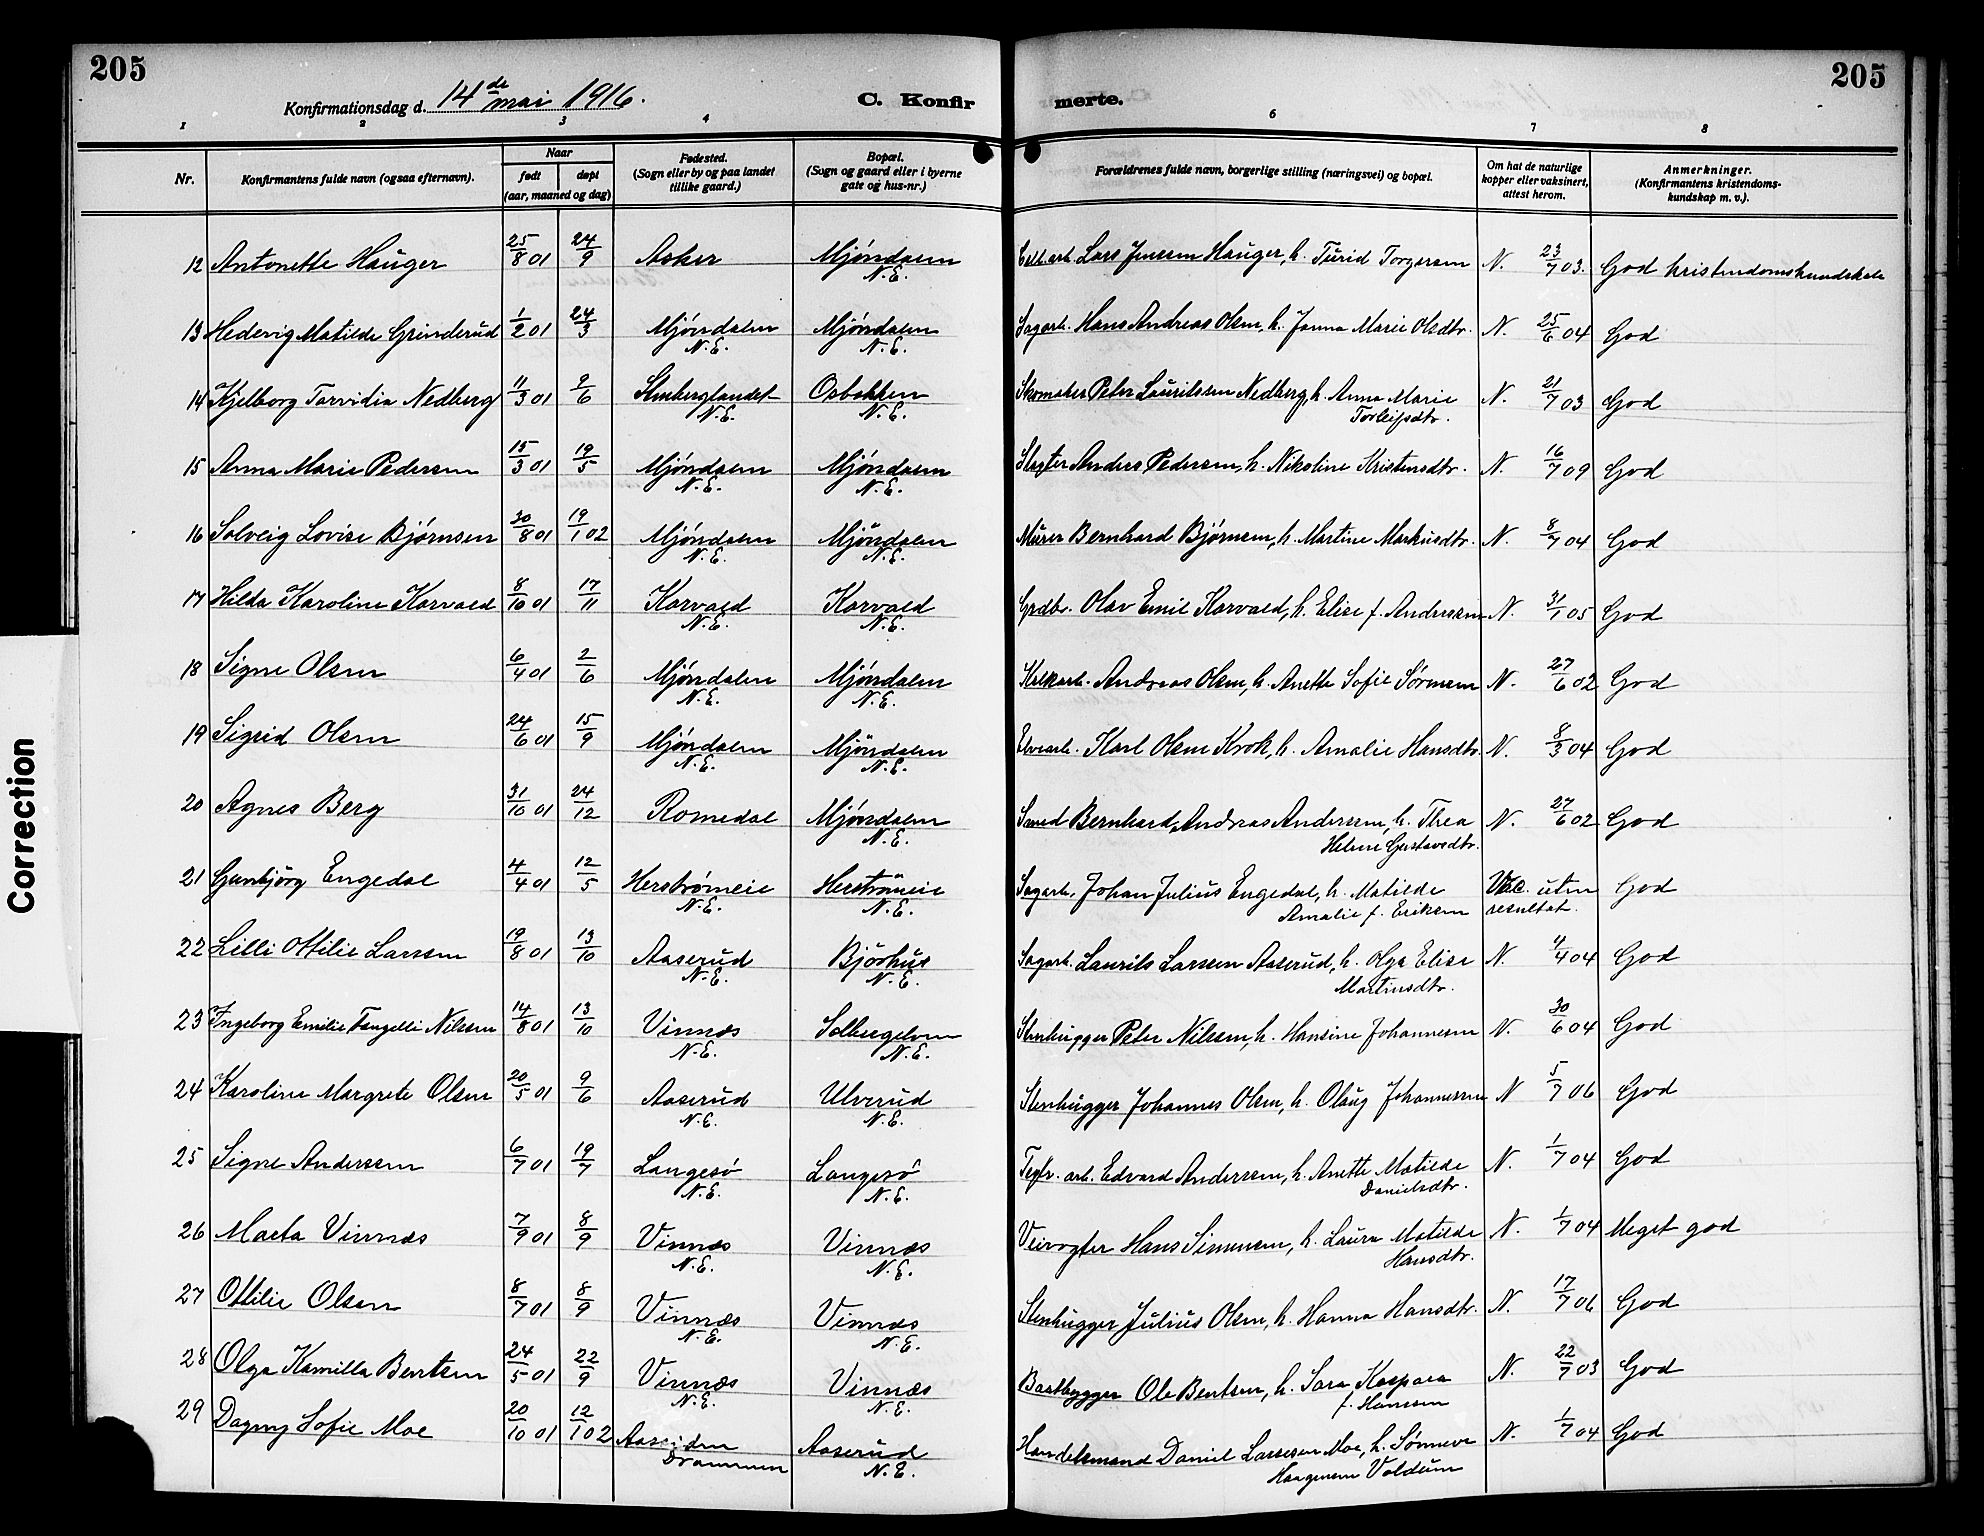 205
205
Konfirmationsdag d. 14de mai 1916.
C. Konfirmerte.
1 2 3 4 6 7 8
Nr. Konfirmantens fulde navn (ogsaa efternavn). Naar født døpt (aar, maaned og dag) Fødested. (Sogn eller by og paa landet tillike gaard.) Bopæl. (Sogn og gaard eller i byerne gate og hus-nr.) Forældrenes fulde navn, borgerlige stilling (næringsvei) og bopæl. Om hat de naturlige kopper eller vaksinert, attest herom. Anmerkninger. (Konfirmantens kristendomskundskap m. v.).
12 Antonette Hauger 25/8 01 24/9 Asker Mjøndalen N.E. Lars Jensen Hauger, h. Turid Torgersen N. 23/7 03. God kristendomskundskab
13 Hedevig Matilde Grinderud 1/2 01 24/3 Mjøndalen N.E. Mjøndalen N.E. Sagarb. Hans Andreas Olsen, h. Janna Marie Olsdtr. N. 25/6 04 God
14 Kjelborg Torvidia Nedberg 11/3 01 9/6 Stenberglandet N.E. Osbakken N.E. Skomaker Peter Lauritssen Nedberg, h. Anna Marie Torleifsdtr. N. 21/7 03 God
15 Anna Marie Pedersen 15/3 01 19/5 Mjøndalen N.E. Mjøndalen N.E. Slagter Anders Pedersen, h. Nikoline Kristensdtr. N. 16/7 09 God
16 Solveig Lovise Bjørnsen 30/8 01 19/1 02 Mjøndalen N.E. Mjøndalen N.E. Murer Bernhard Bjørnsen, h. Martine Markusdtr. N. 8/7 04 God
17 Hilda Karoline Korvald 8/10 01 17/11 Korvald N.E. Korvald N.E. Grdbr. Olav Emil Korvald, h. Elise f. Anderssen N. 31/1 05 God
18 Signe Olsen 6/4 01 2/6 Mjøndalen N.E. Mjøndalen N.E. Kalkarb. Andreas Olsen, h. Anette Sofie Sørensen N. 27/6 02 God
19 Sigrid Olsen 24/6 01 15/9 Mjøndalen N.E. Mjøndalen N.E. Elvearb. Karl Olsen Krok, h. Amalie Hansdtr. N. 8/3 04 God
20 Agnes Berg 31/10 01 24/12 Romedal Mjøndalen N.E. Smed Bernhard Andreas Andersen, h. Thea Helene Gustavsdtr. N. 27/6 02 God
21 Gunbjørg Engedal 4/4 01 12/5 Herstrømeie N.E. Herstrømeie N.E. Sagarb. Johan Julius Engedal, h. Matilde Amalie f. Eriksen Vac. uten resultat. God
22 Lilli Ottilie Larssen 19/8 01 13/10 Aaserud N.E. Bjørhus N.E. Sagarb. Laurits Larssen Aaserud, h. Olga Elise Martinsdtr. N. 4/4 04 God
23 Ingeborg Emilie Tangelli Nilssen 14/8 01 13/10 Vinnæs N.E. Solbergelven N.E. Stenhugger Peter Nilssen, h. Hansine Johannesen N. 30/6 04 God
24 Karoline Margrete Olsen 20/5 01 9/6 Aaserud N.E. Ulverud N.E. Stenhugger Johannes Olsen, h. Olaug Johannessen N 5/7 06 God
25 Signe Anderssen 6/7 01 19/7 Langesø N.E. Langesø N.E. arb. Edvard Anderssen, h. Anette Matilde Danielsdtr. N. 1/7 04 God
26 Marta Vinnæs 7/9 01 8/9 Vinnæs N.E. Vinnæs N.E. Veivogter Hans Simensen, h. Laura Matilde Hansdtr. N. 1/7 04 Meget god
27 Ottilie Olsen 8/7 01 8/9 Vinnæs N.E. Vinnæs N.E. Stenhugger Julius Olsen, h. Hanna Hansdtr. N. 17/7 06 God
28 Olga Kamilla Bentsen 24/5 01 22/9 Vinnæs N.E. Vinnæs N.E. Baatbygger Ole Bentsen, h. Sara Kaspara f. Hanssen N. 22/7 03 God
29 Dagny Sofie Moe 20/10 01 12/1 02 Aassiden Drammen Aaserud N.E. Handelsmand Daniel Larssen Moe, h. Sønneve Haagensen Voldum N. 1/7 04 God
Correction